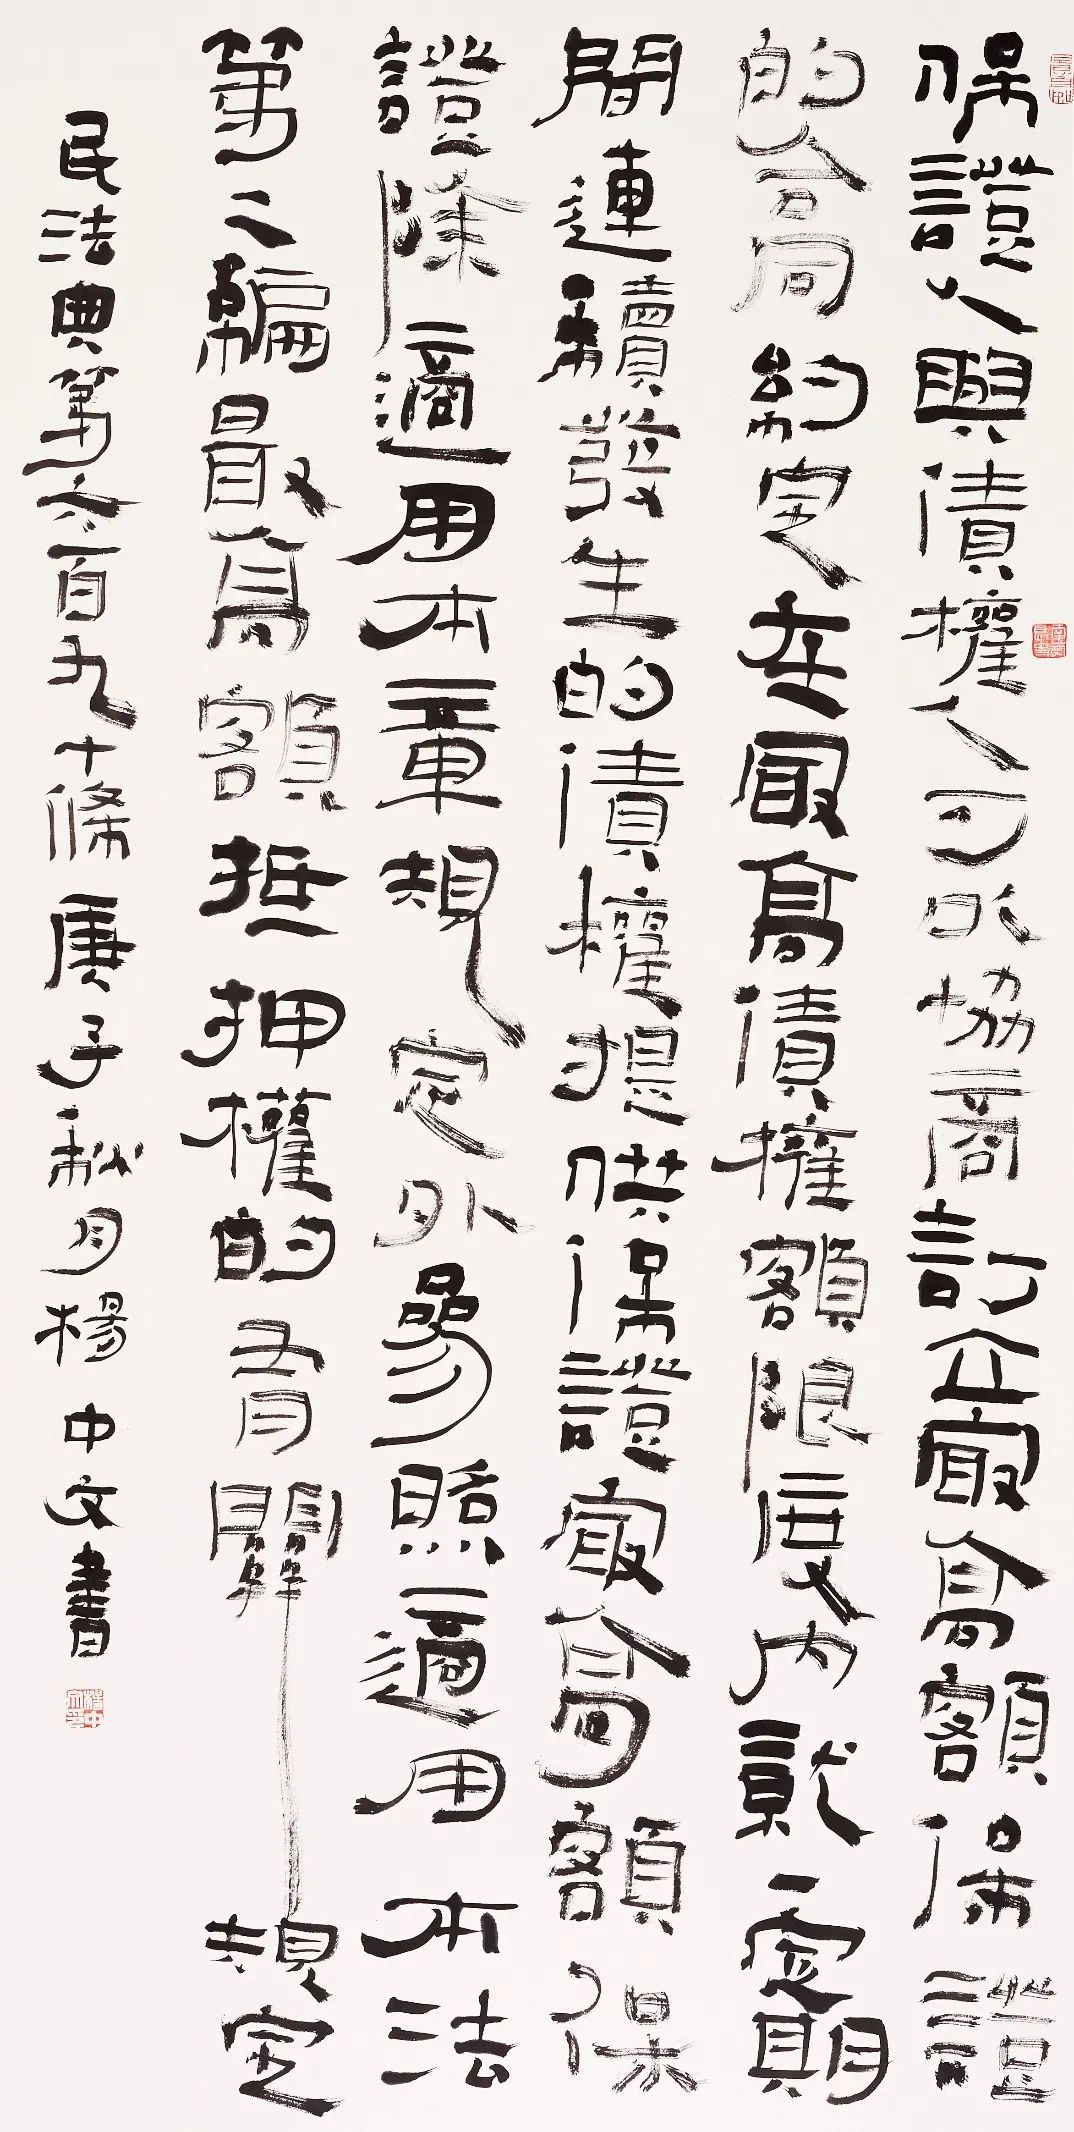 保證人與債權人可以協商訂立最高額保證
的合同約定在最高債權額限度內就一定期
間連續發生的債權提供保證最高額保
證除適用本章規定外參照適用本法
第二編最高額抵押權的有關規定
民法典第六百九十條庚子秋月楊中文書